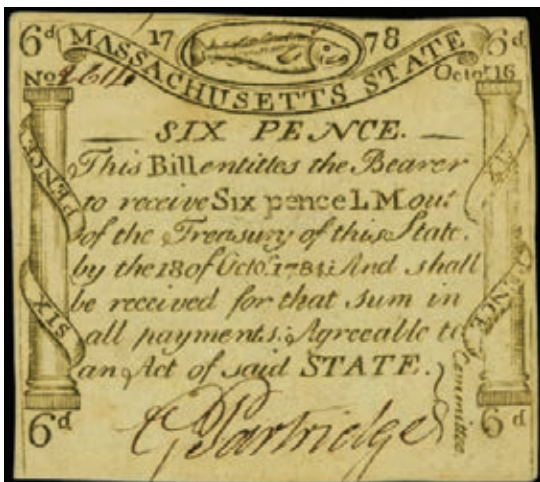 6d 17 78 6d
MASSACHUSETTS STATE
No Octor 16
SIX PENCE.
This Bill entitles the Bearer
to receive Six pence L M out
of the Treasury of this State.
by the 18 of Octor. 1784. And shall
be received for that sum in
all payments. Agreeable to
an Act of said STATE.
SIX PENCE
PENCE
6d 6d
G Partridge
Committee